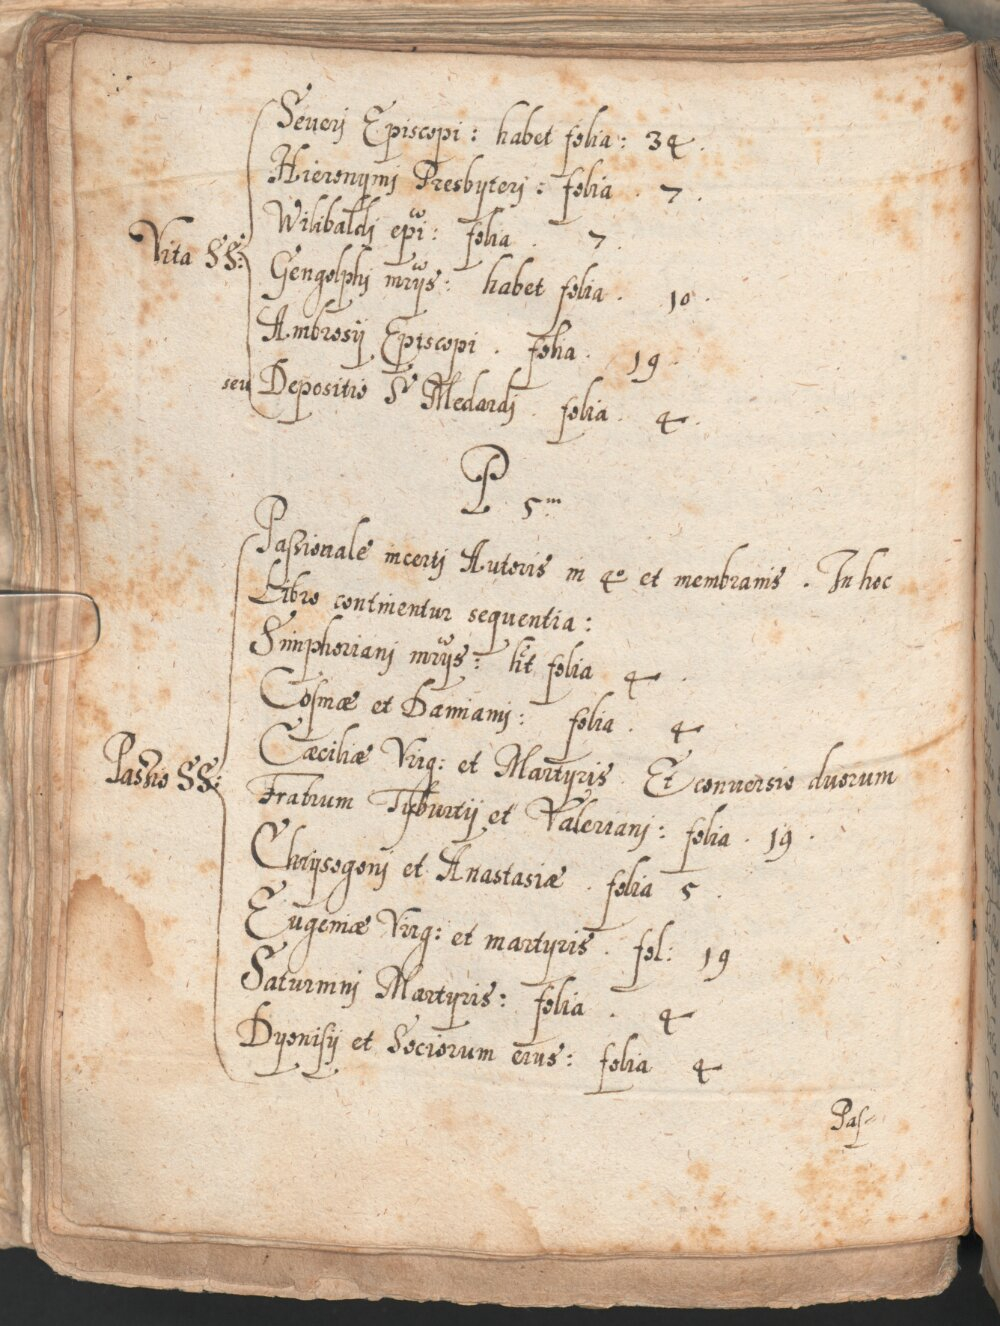 Seuerj Episcopi : habet folia : 34 .
Hieronymj Presbyterj : folia . 7 .
Wilibaldj epi : folia . 7 .
Vita SS:
Gengolphj mrijs : habet folia . 10 .
Ambrosij Episcopi . folia . 19 .
seu Depositio S Medardj . folia . 4 .
P 5m
Paßionale incertj Autoris in 4o et membranis . In hoc
Libro continentur sequentia :
Simphorianj mrijs : ht folia 4 .
Cosmæ et Damianj : folia . 4
Passio SS:
Cæciliæ Virg: et Martyris . Et conuersio duorum
Fratrum Tyburtij et Valerianj : folia . 19 .
Chrijsogonj et Anastasiæ . folia 5 .
Eugeniæ Virg: et martyris . fol: 19
Saturninj Martyris : folia . 4
Dyonisij et Sociorum eius : folia 4
Pas=